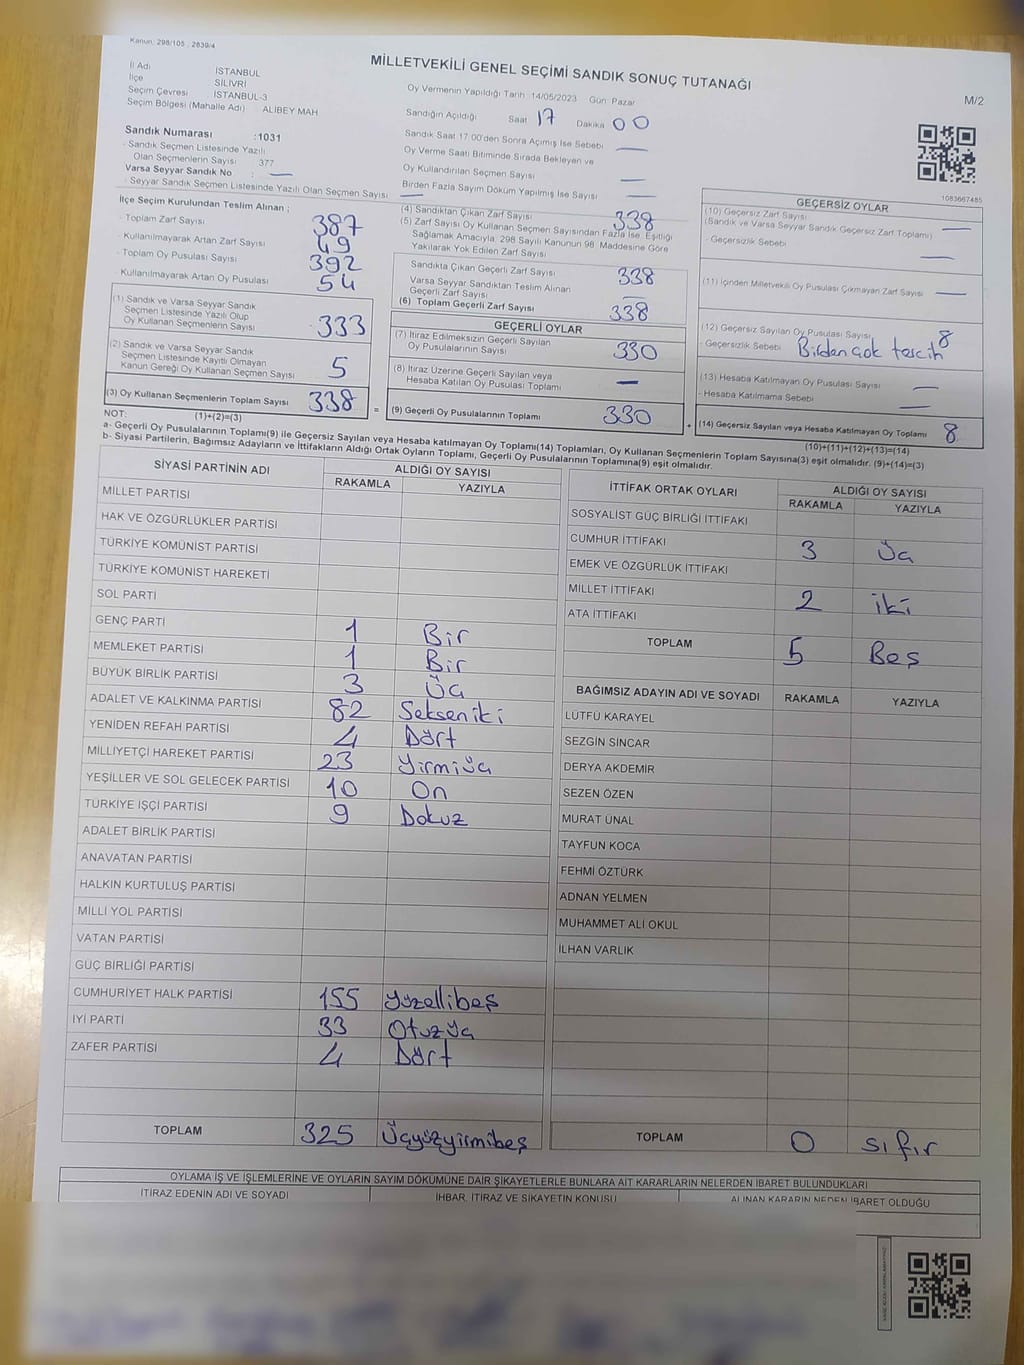 Kanun: 298/105 , 2839/4
MİLLETVEKİLİ GENEL SEÇİMİ SANDIK SONUÇ TUTANAĞI
M/2
İl Adı İSTANBUL
İlçe SİLİVRİ
Seçim Çevresi İSTANBUL-3
Seçim Bölgesi (Mahalle Adı) ALİBEY MAH
Oy Vermenin Yapıldığı Tarih :14/05/2023 Gün: Pazar
Sandığın Açıldığı Saat 17 Dakika 00
Sandık Saat 17:00'den Sonra Açılmış İse Sebebi —
Oy Verme Saati Bitiminde Sırada Bekleyen ve
Oy Kullandırılan Seçmen Sayısı —
Birden Fazla Sayım Döküm Yapılmış İse Sayısı —
Sandık Numarası :1031
- Sandık Seçmen Listesinde Yazılı
Olan Seçmenlerin Sayısı 377
Varsa Seyyar Sandık No : —
- Seyyar Sandık Seçmen Listesinde Yazılı Olan Seçmen Sayısı —
1083667485
İlçe Seçim Kurulundan Teslim Alınan ;
- Toplam Zarf Sayısı 387
- Kullanılmayarak Artan Zarf Sayısı 49
- Toplam Oy Pusulası Sayısı 392
- Kullanılmayarak Artan Oy Pusulası 54
(1) Sandık ve Varsa Seyyar Sandık
Seçmen Listesinde Yazılı Olup
Oy Kullanan Seçmenlerin Sayısı 333
(2) Sandık ve Varsa Seyyar Sandık
Seçmen Listesinde Kayıtlı Olmayan
Kanun Gereği Oy Kullanan Seçmen Sayısı 5
(3) Oy Kullanan Seçmenlerin Toplam Sayısı 338
(4) Sandıktan Çıkan Zarf Sayısı 338
(5) Zarf Sayısı Oy Kullanan Seçmen Sayısından Fazla İse, Eşitliği
Sağlamak Amacıyla, 298 Sayılı Kanunun 98. Maddesine Göre
Yakılarak Yok Edilen Zarf Sayısı
Sandıkta Çıkan Geçerli Zarf Sayısı 338
Varsa Seyyar Sandıktan Teslim Alınan
Geçerli Zarf Sayısı —
(6) Toplam Geçerli Zarf Sayısı 338
GEÇERLİ OYLAR
(7) İtiraz Edilmeksizin Geçerli Sayılan
Oy Pusulalarının Sayısı 330
(8) İtiraz Üzerine Geçerli Sayılan veya
Hesaba Katılan Oy Pusulası Toplamı —
= (9) Geçerli Oy Pusulalarının Toplamı 330
GEÇERSİZ OYLAR
(10) Geçersiz Zarf Sayısı
(Sandık ve Varsa Seyyar Sandık Geçersiz Zarf Toplamı) —
- Geçersizlik Sebebi —
(11) İçinden Milletvekili Oy Pusulası Çıkmayan Zarf Sayısı —
(12) Geçersiz Sayılan Oy Pusulası Sayısı 8
- Geçersizlik Sebebi Birden çok tercih
(13) Hesaba Katılmayan Oy Pusulası Sayısı —
- Hesaba Katılmama Sebebi —
+ (14) Geçersiz Sayılan veya Hesaba Katılmayan Oy Toplamı 8
NOT: (1)+(2)=(3)
(10)+(11)+(12)+(13)=(14)
a- Geçerli Oy Pusulalarının Toplamı(9) ile Geçersiz Sayılan veya Hesaba katılmayan Oy Toplamı(14) Toplamları, Oy Kullanan Seçmenlerin Toplam Sayısına(3) eşit olmalıdır. (9)+(14)=(3)
b- Siyasi Partilerin, Bağımsız Adayların ve İttifakların Aldığı Ortak Oyların Toplamı, Geçerli Oy Pusulalarının Toplamına(9) eşit olmalıdır.
SİYASİ PARTİNİN ADI ALDIĞI OY SAYISI
RAKAMLA YAZIYLA
MİLLET PARTİSİ
HAK VE ÖZGÜRLÜKLER PARTİSİ
TÜRKİYE KOMÜNİST PARTİSİ
TÜRKİYE KOMÜNİST HAREKETİ
SOL PARTİ
GENÇ PARTİ 1 Bir
MEMLEKET PARTİSİ 1 Bir
BÜYÜK BİRLİK PARTİSİ 3 Üç
ADALET VE KALKINMA PARTİSİ 82 Sekseniki
YENİDEN REFAH PARTİSİ 4 Dört
MİLLİYETÇİ HAREKET PARTİSİ 23 Yirmiüç
YEŞİLLER VE SOL GELECEK PARTİSİ 10 On
TÜRKİYE İŞÇİ PARTİSİ 9 Dokuz
ADALET BİRLİK PARTİSİ
ANAVATAN PARTİSİ
HALKIN KURTULUŞ PARTİSİ
MİLLİ YOL PARTİSİ
VATAN PARTİSİ
GÜÇ BİRLİĞİ PARTİSİ
CUMHURİYET HALK PARTİSİ 155 Yüzellibeş
İYİ PARTİ 33 Otuzüç
ZAFER PARTİSİ 4 Dört
TOPLAM 325 Üçyüzyirmibeş
İTTİFAK ORTAK OYLARI ALDIĞI OY SAYISI
RAKAMLA YAZIYLA
SOSYALİST GÜÇ BİRLİĞİ İTTİFAKI
CUMHUR İTTİFAKI 3 Üç
EMEK VE ÖZGÜRLÜK İTTİFAKI
MİLLET İTTİFAKI 2 iki
ATA İTTİFAKI
TOPLAM 5 Beş
BAĞIMSIZ ADAYIN ADI VE SOYADI RAKAMLA YAZIYLA
LÜTFÜ KARAYEL
SEZGİN SİNCAR
DERYA AKDEMİR
SEZEN ÖZEN
MURAT ÜNAL
TAYFUN KOCA
FEHMİ ÖZTÜRK
ADNAN YELMEN
MUHAMMET ALİ OKUL
İLHAN VARLIK
TOPLAM 0 sıfır
OYLAMA İŞ VE İŞLEMLERİNE VE OYLARIN SAYIM DÖKÜMÜNE DAİR ŞİKAYETLERLE BUNLARA AİT KARARLARIN NELERDEN İBARET BULUNDUKLARI
İTİRAZ EDENİN ADI VE SOYADI İHBAR, İTİRAZ VE ŞİKAYETİN KONUSU ALINAN KARARIN NEDEN İBARET OLDUĞU